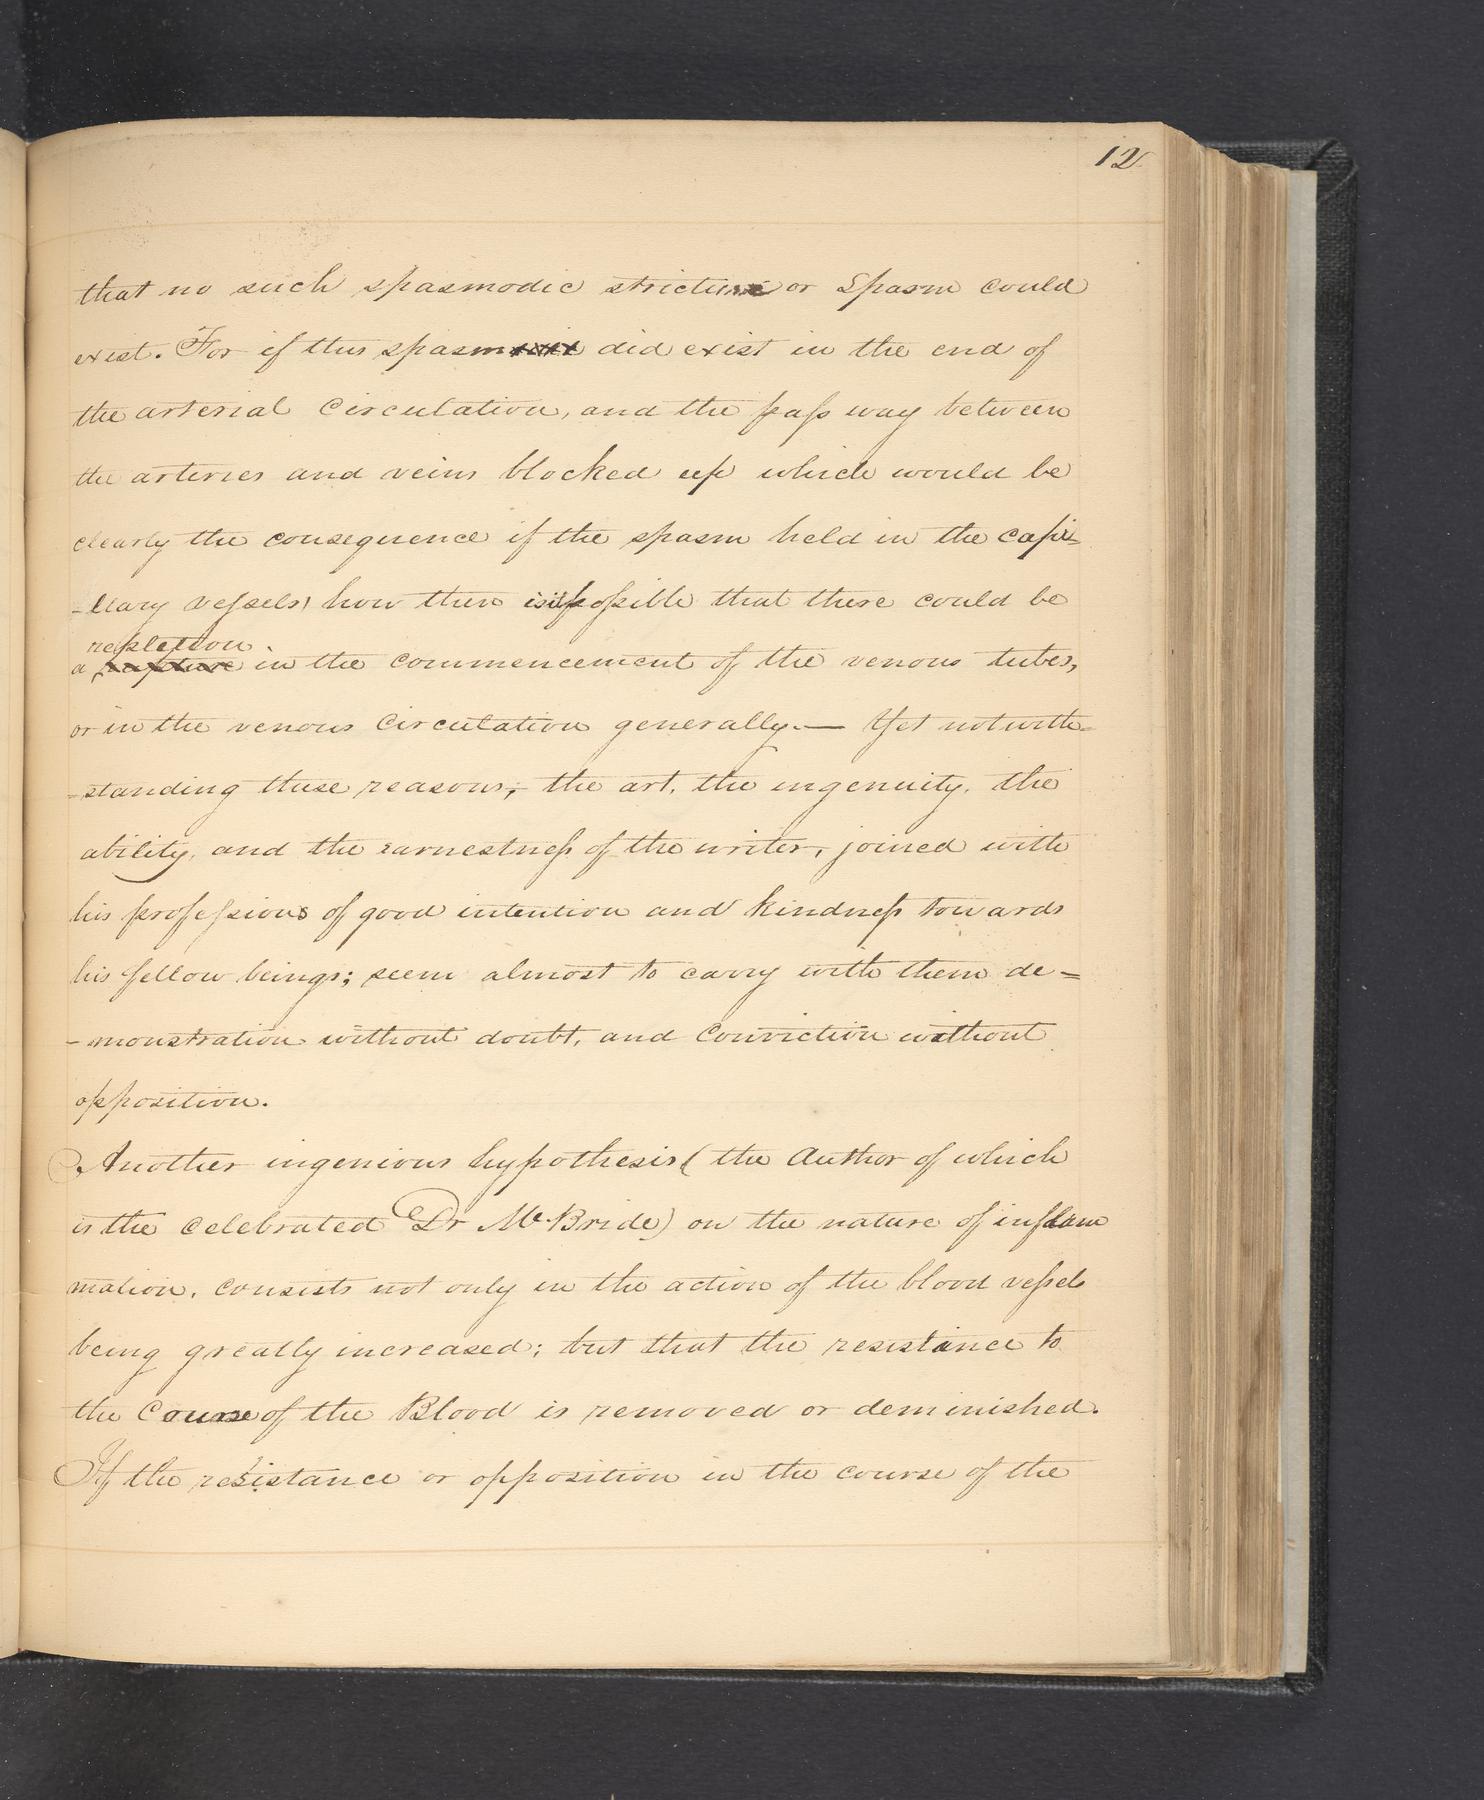 12
that no such spasmodic stricture or Spasm could
exist. For if this spasm did exist in the end of
the arterial Circulation, and the pass way between
the arteries and veins blocked up which would be
clearly the consequence if the spasm held in the capi=
-llary vessels, how then is it possible that there could be
repletion
a rupture in the commencement of the venous tubes,
or in the venous Circulation generally.— Yet notwith=
-standing these reasons, the art, the ingenuity, the
ability, and the earnestness of the writer, joined with
his professions of good intention and kindness towards
his fellow beings; seem almost to carry with them de=
-monstration without doubt, and Conviction without
opposition.
Another ingenious hypothesis (the Author of which
is the celebrated Dr McBride) on the nature of inflam
mation, consists not only in the action of the blood vessels
being greatly increased; but that the resistance to
the Course of the Blood is removed or deminished.
If the resistance or opposition in the course of the